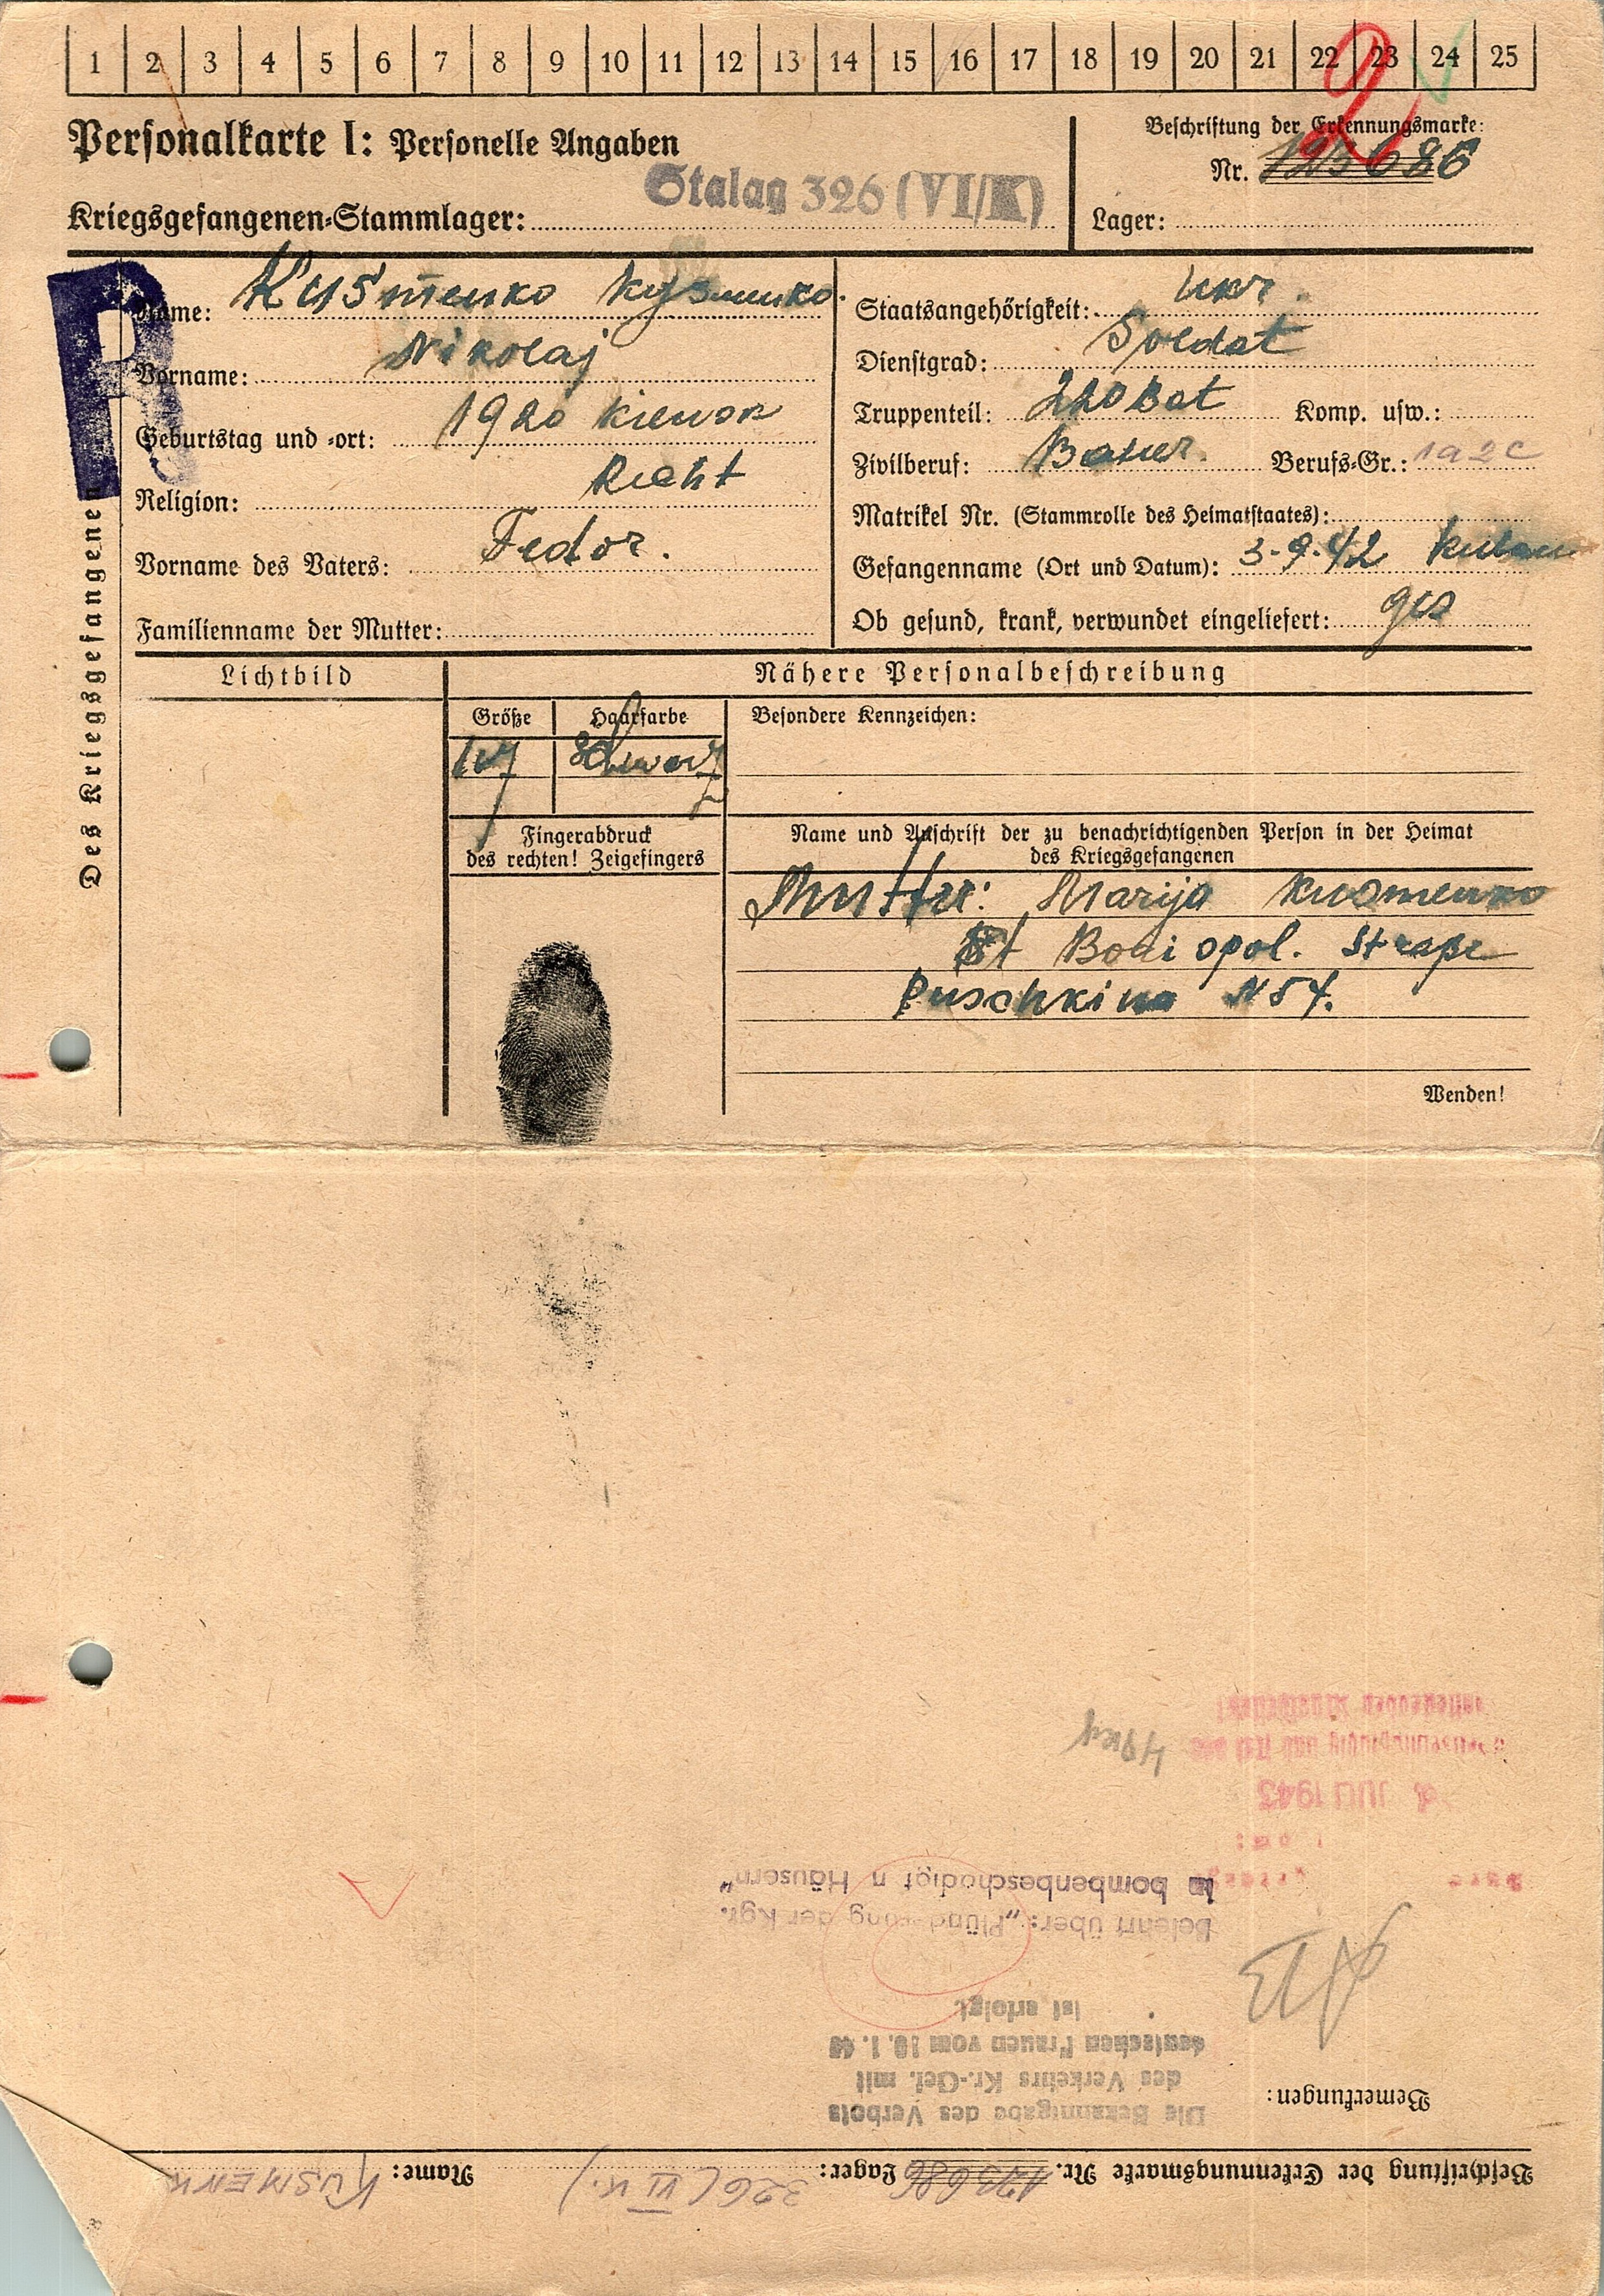 1 2 3 4 5 6 7 8 9 10 11 12 13 14 15 16 17 18 19 20 21 22 23 24 25
2
Personalkarte I: Personelle Angaben
Beschriftung der Erkennungsmarke:
Nr. 123686
Kriegsgefangenen-Stammlager: Stalag 326 (VI/K)
Lager:
R
Des Kriegsgefangenen
Name: Kusmenko Kusmenko
Vorname: Nikolaj
Geburtstag und -ort: 1920 Kiewsk
Religion:
Vorname des Vaters: Fedor.
Familienname der Mutter:
Staatsangehörigkeit: Ukr.
Dienstgrad: Soldat
Truppenteil: 220 Bat Komp. usw.:
Zivilberuf: Bauer. Berufs-Gr.: 1a2c
Matrikel Nr. (Stammrolle des Heimatstaates):
Gefangenname (Ort und Datum): 3-9-42 Kuban
Ob gesund, krank, verwundet eingeliefert: ges
Lichtbild
Nähere Personalbeschreibung
Größe Haarfarbe
Schwarz
Besondere Kennzeichen:
Fingerabdruck
des rechten! Zeigefingers
Name und Anschrift der zu benachrichtigenden Person in der Heimat
des Kriegsgefangenen
Mutter: Marija Kusmenko
St Straße
Puschkina N 54.
Wenden!
Beschriftung der Erkennungsmarke Nr. 123686 Lager: 326 (VI K.) Name: KUSMENK
Bemerkungen:
Die Bekanntgabe des Verbots
des Verkehrs Kr.-Gef. mit
deutschen Frauen vom 10.1.
ist erfolgt
Belehrt über: „Plünderung der Kgf.
in bombenbeschädigt n Häusern“
JULI 1943